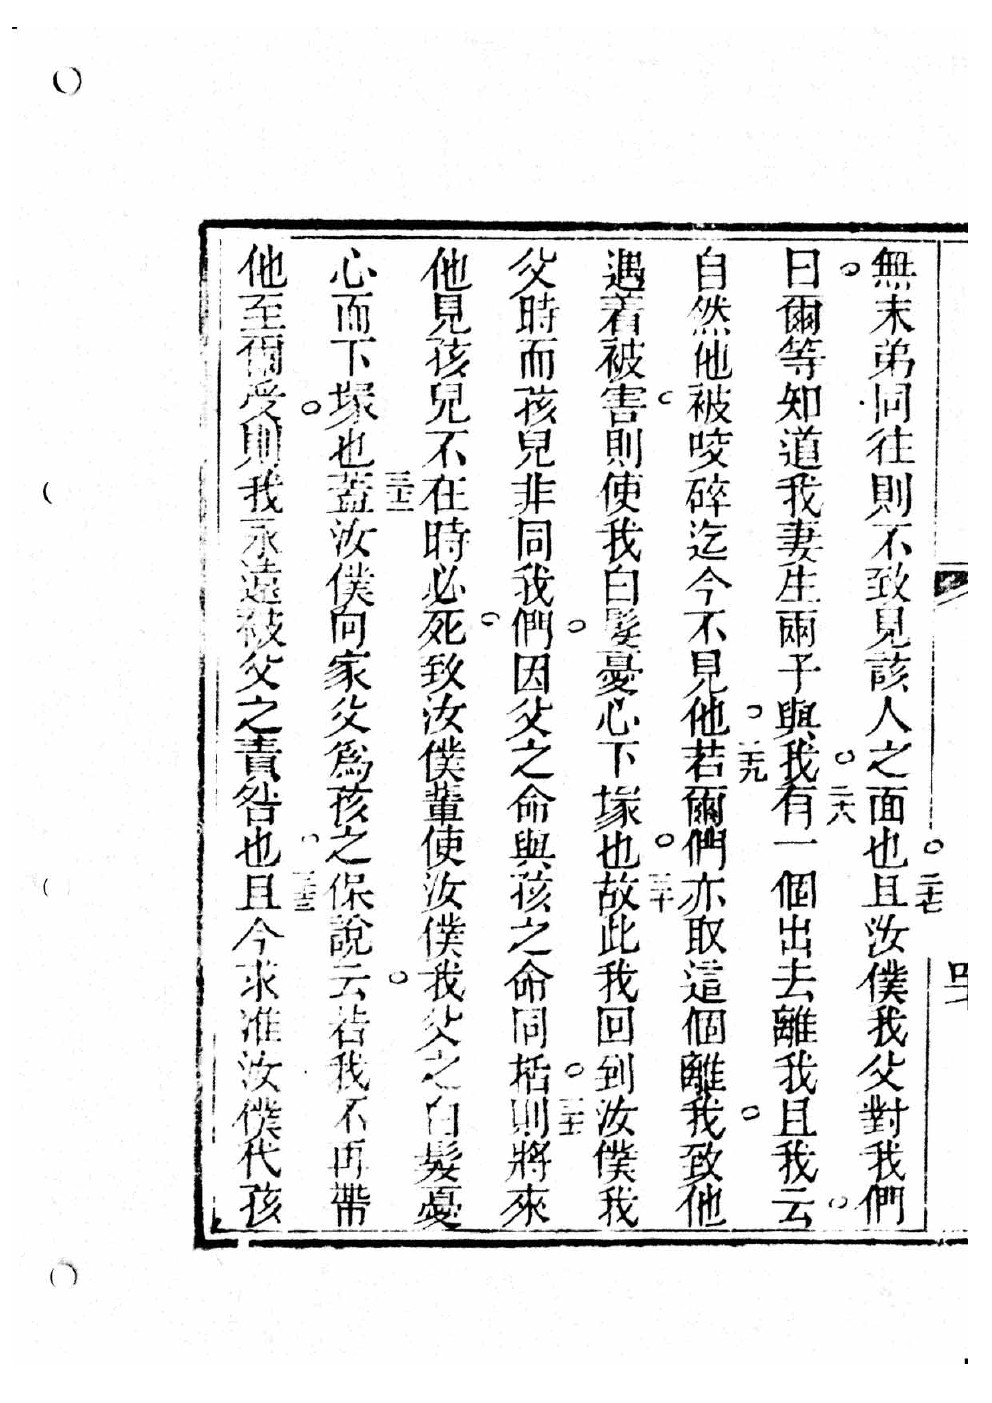 無末弟同往則不致見該人之面也。二十七且汝僕我父對我們
曰爾等知道我妻生兩子與我。二十八有一個出去離我且我云。
自然他被咬碎迄今不見他。二十九若爾們亦取這個離我。致他
遇着被害。則使我白髮憂心下塚也。三十故此我回到汝僕我
父時而孩兒非同我們。因父之命與孩之命同栝。三十一則將來
他見孩兒不在時必死。致汝僕輩使汝僕我父之白髮憂
心而下塚也。三十二蓋汝僕向家父爲孩之保說云。若我不再帶
他至爾受。則我永遠被父之責咎也。三十三且今求准汝僕代孩